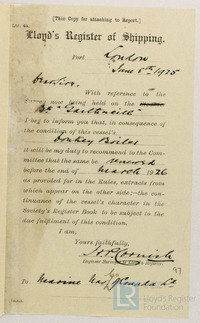 [This Copy for attaching to Report.]
Lloyd's Register of Shipping.
Port London
June 8th 1925
Dear Sir,
With reference to the
survey now being held on the
I beg to inform you that, in consequence of
the condition of this vessel's
Donkey Boiler
it will be my duty to recommend to the
Committee that the same be renewed
before the end of March 1926
as provided for in the Rules, extracts from
which appear on the other side;—the con-
tinuance of the vessel's character in the
Society's Register Book to be subject to the
due fulfilment of this condition.
I am,
Yours faithfully,
Cornish
Engineer Surveyor
97
To Marine
Lloyd's Register
Foundation